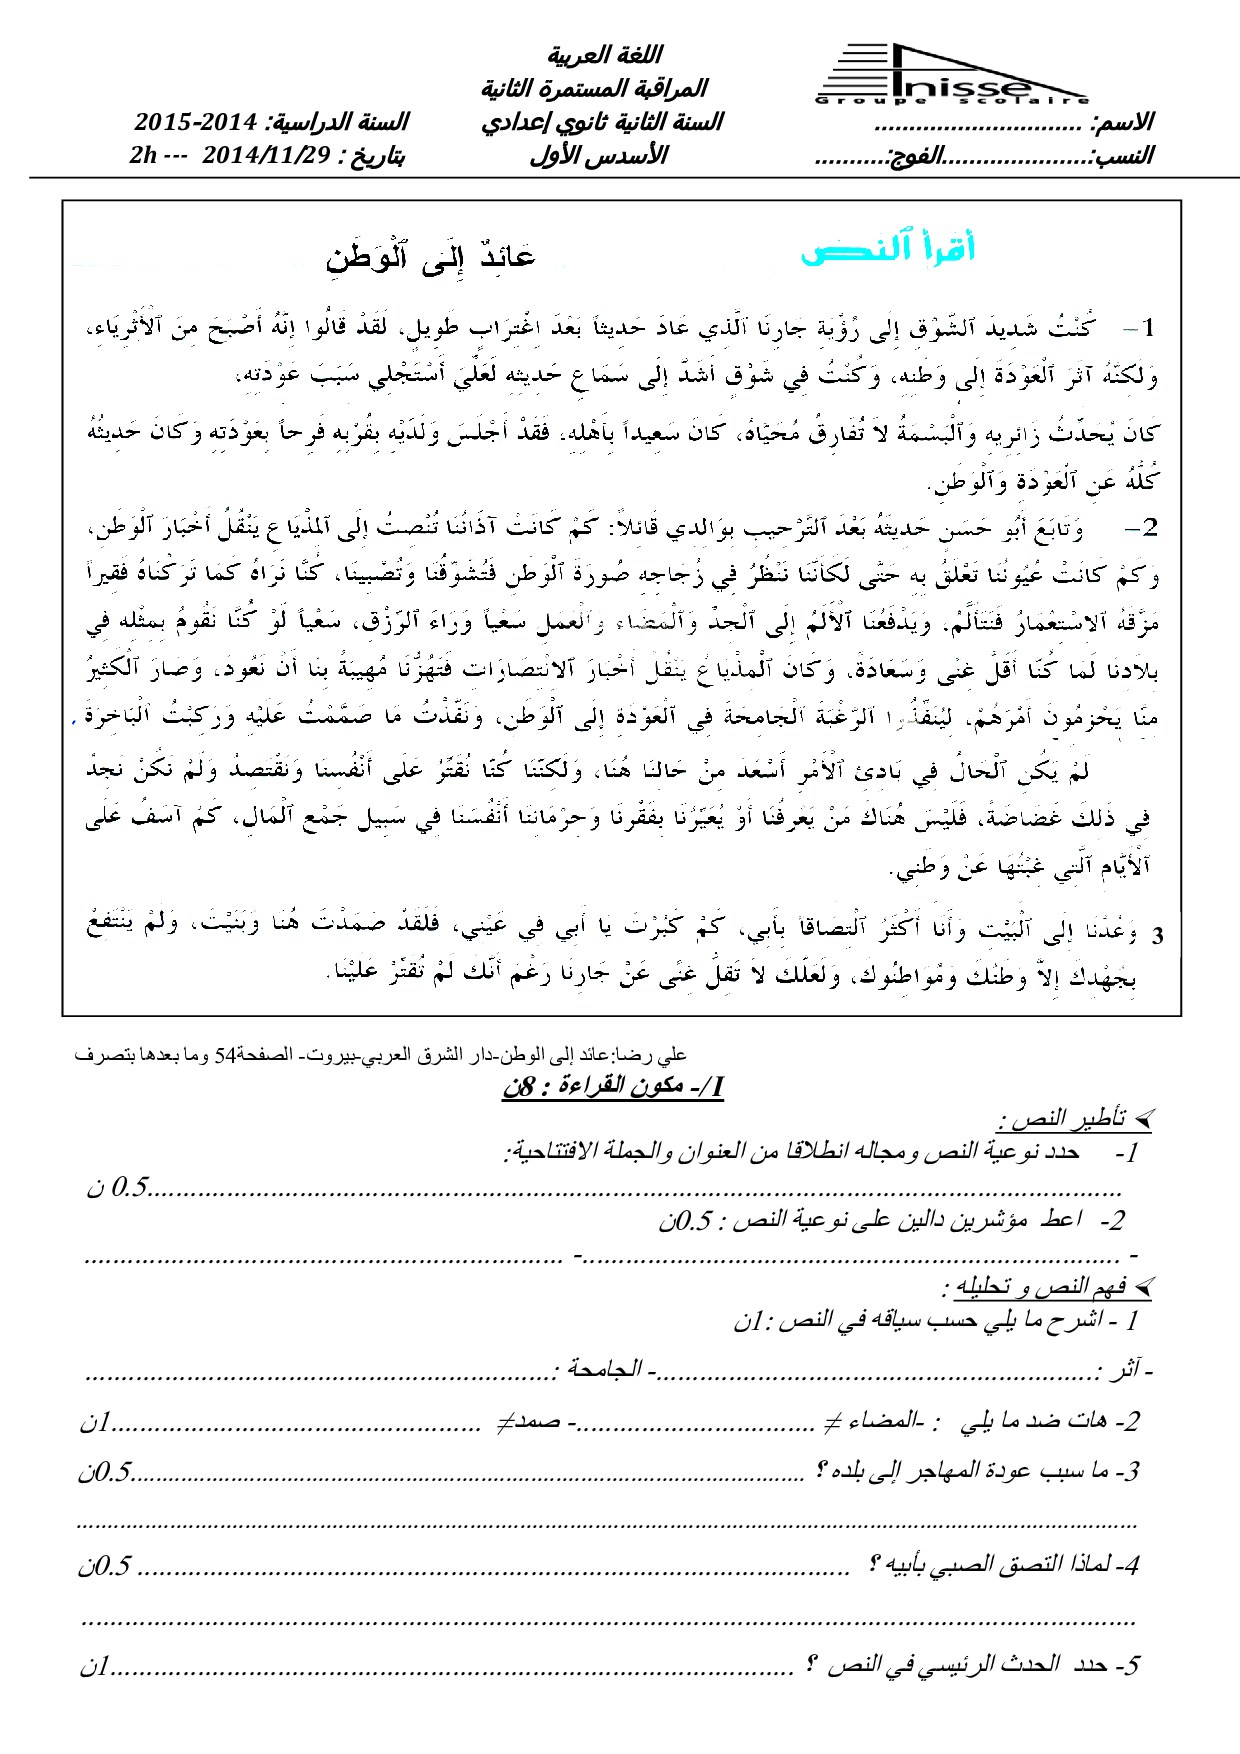 اللغة العربية
المراقبة المستمرة الثانية
Anisse
Groupe scolaire
الاسم: .............................. السنة الثانية ثانوي إعدادي السنة الدراسية: 2014-2015
النسب:.....................الفوج:.......... الأسدس الأول بتاريخ : 2014/11/29 --- 2h
أقرأ ٱلنص
عَائِدٌ إِلَى ٱلْوَطَنِ
1– كُنْتُ شَدِيدَ ٱلشَّوْقِ إِلَى رُؤْيَةِ جَارِنَا ٱلَّذِي عَادَ حَدِيثاً بَعْدَ اغْتِرَابٍ طَوِيلٍ، لَقَدْ قَالُوا إِنَّهُ أَصْبَحَ مِنَ ٱلْأَثْرِيَاءِ،
وَلَكِنَّهُ آثَرَ ٱلْعَوْدَةَ إِلَى وَطَنِهِ، وَكُنْتُ فِي شَوْقٍ أَشَدَّ إِلَى سَمَاعِ حَدِيثِهِ لَعَلِّيَ أَسْتَجْلِي سَبَبَ عَوْدَتِهِ،
كَانَ يُحَدِّثُ زَائِرِيهِ وَٱلْبَسْمَةُ لاَ تُفَارِقُ مُحَيَّاهُ، كَانَ سَعِيداً بِأَهْلِهِ، فَقَدْ أَجْلَسَ وَلَدَيْهِ بِقُرْبِهِ فَرِحاً بِعَوْدَتِهِ وَكَانَ حَدِيثُهُ
كُلُّهُ عَنِ ٱلْعَوْدَةِ وَٱلْوَطَنِ.
2– وَتَابَعَ أَبُو حَسَنٍ حَدِيثَهُ بَعْدَ ٱلتَّرْحِيبِ بِوَالِدِي قَائِلاً: كَمْ كَانَتْ آذَانُنَا تُنْصِتُ إِلَى ٱلْمِذْيَاعِ يَنْقُلُ أَخْبَارَ ٱلْوَطَنِ،
وَكَمْ كَانَتْ عُيُونُنَا تَعْلَقُ بِهِ حَتَّى لَكَأَنَّنَا نَنْظُرُ فِي زُجَاجِهِ صُورَةَ ٱلْوَطَنِ فَتُشَوِّقُنَا وَتُضْنِينَا، كُنَّا نَرَاهُ كَمَا تَرَكْنَاهُ فَقِيراً
مَزَّقَهُ الاسْتِعْمَارُ فَنَتَأَلَّمُ. وَيَدْفَعُنَا ٱلْأَلَمُ إِلَى ٱلْجِدِّ وَٱلْمَضَاءِ وَٱلْعَمَلِ سَعْياً وَرَاءَ ٱلرِّزْقِ، سَعْياً لَوْ كُنَّا نَقُومُ بِمِثْلِهِ فِي
بِلَادِنَا لَمَا كُنَّا أَقَلَّ غِنًى وَسَعَادَةً، وَكَانَ ٱلْمِذْيَاعُ يَنْقُلُ أَخْبَارَ الانْتِصَارَاتِ فَتَهُزُّنَا مُهِيبَةً بِنَا أَنْ نَعُودَ، وَصَارَ ٱلْكَثِيرُ
مِنَّا يَحْزِمُونَ أَمْرَهُمْ، لِيُنَفِّذُوا ٱلرَّغْبَةَ ٱلْجَامِحَةَ فِي ٱلْعَوْدَةِ إِلَى ٱلْوَطَنِ، وَنَفَّذْتُ مَا صَمَّمْتُ عَلَيْهِ وَرَكِبْتُ ٱلْبَاخِرَةَ.
لَمْ يَكُنِ ٱلْحَالُ فِي بَادِئِ ٱلْأَمْرِ أَسْعَدَ مِنْ حَالِنَا هُنَا، وَلَكِنَّنَا كُنَّا نُقَتِّرُ عَلَى أَنْفُسِنَا وَنَقْتَصِدُ وَلَمْ نَكُنْ نَجِدُ
فِي ذَلِكَ غَضَاضَةً، فَلَيْسَ هُنَاكَ مَنْ يَعْرِفُنَا أَوْ يُعَيِّرُنَا بِفَقْرِنَا وَحِرْمَانِنَا أَنْفُسَنَا فِي سَبِيلِ جَمْعِ ٱلْمَالِ، كَمْ آسَفُ عَلَى
ٱلْأَيَّامِ ٱلَّتِي غِبْتُهَا عَنْ وَطَنِي.
3 وَعُدْنَا إِلَى ٱلْبَيْتِ وَأَنَا أَكْثَرُ ٱلْتِصَاقاً بِأَبِي، كَمْ كَبُرْتَ يَا أَبِي فِي عَيْنِي، فَلَقَدْ صَمَدْتَ هُنَا وَبَنَيْتَ، وَلَمْ يَنْتَفِعْ
بِجُهْدِكَ إِلاَّ وَطَنُكَ وَمُوَاطِنُوكَ، وَلَعَلَّكَ لاَ تَقِلُّ غِنًى عَنْ جَارِنَا رَغْمَ أَنَّكَ لَمْ تُقَتِّرْ عَلَيْنَا.
علي رضا:عائد إلى الوطن-دار الشرق العربي-بيروت- الصفحة54 وما بعدها بتصرف
I/- مكون القراءة : 8ن
تأطير النص :
1- حدد نوعية النص ومجاله انطلاقا من العنوان والجملة الافتتاحية:
..............................0.5 ن
2- اعط مؤشرين دالين على نوعية النص : 0.5ن
- ..............................- ..............................
فهم النص و تحليله :
1 - اشرح ما يلي حسب سياقه في النص :1ن
- آثر :..............................- الجامحة :..............................
2- هات ضد ما يلي : -المضاء ≠ ..............................- صمد≠ ..............................1ن
3- ما سبب عودة المهاجر إلى بلده ؟ ..............................0.5ن
..............................
4- لماذا التصق الصبي بأبيه ؟ .............................. 0.5ن
..............................
5- حدد الحدث الرئيسي في النص ؟ ..............................1ن